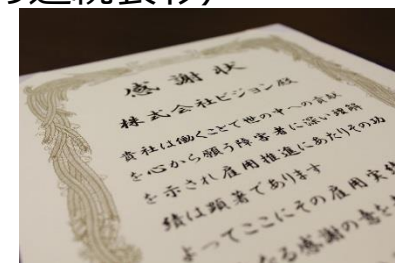 連続表彰）
感謝状
株式会社ビジョン殿
貴社は働くことで世の中への貢献
を心から願う障害者に深い理解
を示され雇用推進にあたりその功
績は顕著であります
よってここにその雇用実績
なる感謝の意を